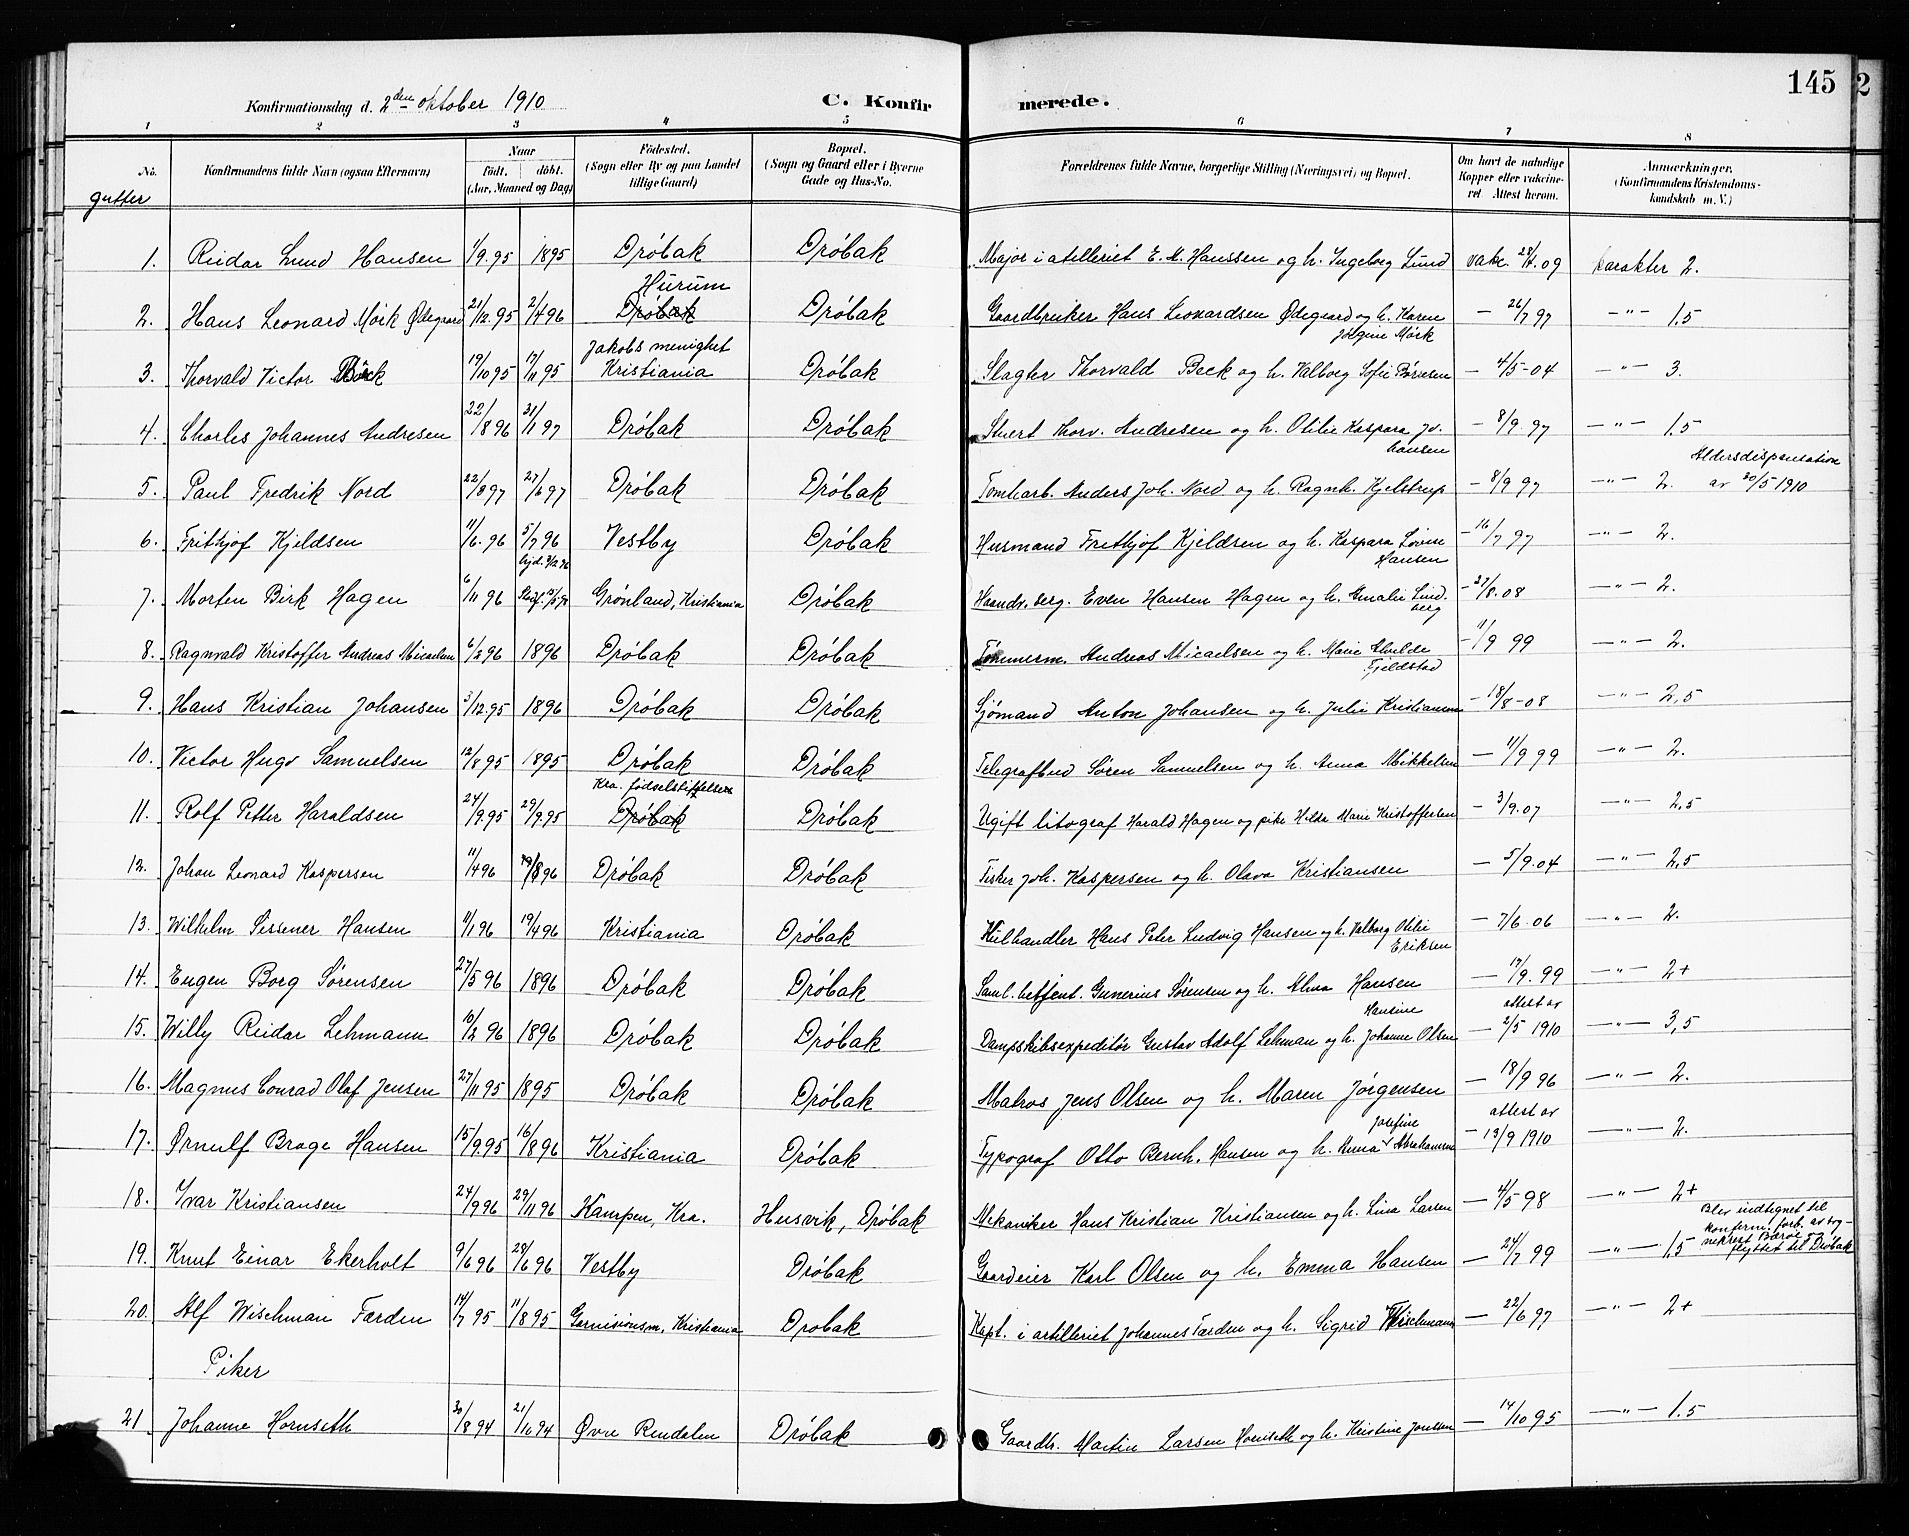 145
2
Konfirmationsdag d. 2den oktober 1910
C. Konfirmerede.
1 2 3 4 5 6 7 8
No. | Konfirmandens fulde Navn (ogsaa Efternavn) | Naar født. døbt. (Aar, Maaned og Dag) | Fødested. (Sogn eller By og paa Landet tillige Gaard) | Bopæl. (Sogn og Gaard eller i Byerne Gade og Hus-No. | Forældrenes fulde Navne, borgerlige Stilling (Næringsvei) og Bopæl. | Om havt de naturlige Kopper eller vaccineret. Attest herom. | Anmerkninger. (Konfirmandens Kristendomskundskab m. V.)
gutter
1. Reidar Lund Hansen 1/9.95 1895 Drøbak Drøbak Major i atilleriet E. M. Hanssen og h. Ingeborg Lund vakc. 09 karakter 2.
2. Hans Leonard Mørk Ødegaard 21/12.95 2/4 96 Hurum Drøbak Drøbak Gaardbruker Hans Leonardsen Ødegaard og h. Karen Jørgine Mørk — 26/7 97 — " — 1,5
3. Thorvald Victor 19/10 95 17/11 95 Jakobs menighet Kristiania Drøbak Slagter Thorvald Beck og h. Valborg Sofie — 4/5-04 — " — 3.
4. Charles Johannes Andresen 22/8 96 31/1 97 Drøbak Drøbak Stuert Thorv. Andresen og h. Otilie Kaspara Johansen — 8/9.97 — " — 1,5
5. Paul Fredrik Nord 22/8 97 27/6 97 Drøbak Drøbak Tomtarb. Anders Joh. Nord og h. Ragnh. Kjelstrup — 8/9 97 — " — 2. Aldersdispensation av 20/5 1910
6. Frithjof Kjeldsen 11/6.96 5/7 96 Vestby Drøbak Husmand Frithjof Kjeldsen og h. Kaspara Lovise Hansen — 16/7 97 — " — 2.
7. Morten Birk Hagen 6/11 96 Grønland, Kristiania Drøbak Haandv.berg. Even Hansen Hagen og h. Amalie Lindberg — 27/8.08 — " — 2.
8. Ragnvald Kristoffer Andreas Micaelsen 6/2 96 1896 Drøbak Drøbak Tømmerm. Andreas Micaelsen og h. Marie Fjeldstad — 11/9 99 — " — 2.
9. Hans Kristian Johansen 3/12.95 1896 Drøbak Drøbak Sjømand Anton Johansen og h. Julie Kristiansen — 18/8-08 — " — 2,5
10. Victor Hugo Samuelsen 12/8 95 1895 Drøbak Drøbak Telegrafbud Søren Samuelsen og h. Anna Mikkelsen — 11/9 99 — " — 2.
11. Rolf Petter Haraldsen 24/9.95 29/9.95 Kra. fødselstiftelse Drøbak Drøbak Ugift litograf Harald Hagen og pike Hilda Marie Kristoffersen — 3/9.07 — " — 2,5
12. Johan Leonard Kaspersen 11/4 96 /8 96 Drøbak Drøbak Fisker Joh. Kaspersen og h. Olava Kristiansen — 5/9.04 — " — 2,5
13. Wilhelm Sissener Hansen 11/1 96 19/4 96 Kristiania Drøbak Kulhandler Hans Peter Ludvig Hansen og h. Valborg Otilie Eriksen — 7/6.06 — " — 2.
14. Eugen Borg Sørensen 27/5 96 1896 Drøbak Drøbak Gunerius Sørensen og h. Alma Hansen — 17/9.99 — " — 2+
15. Willy Reidar Lehmann 10/2 96 1896 Drøbak Drøbak Dampskibsexpeditør Gustav Adolf Lehman og h. Johanne Hansine Olsen attest av — 2/5 1910 — " — 3,5
16. Magnus Conrad Olaf Jensen 27/11 95 1895 Drøbak Drøbak Matros Jens Olsen og h. Maren Jørgensen — 18/9 96 — " — 2.
17. Ørnulf Brage Hansen 15/9.95 16/8 96 Kristiania Drøbak Typograf Otto Bernh. Hansen og h. Anna Josefine Abrahamsen attest av — 13/9 1910 — " — 2.
18. Ivar Kristiansen 24/9 96 29/11 96 Kampen, Kra. Husvik, Drøbak Mekaniker Hans Kristian Kristiansen og h. Lina Larsen — 4/5 98 — " — 2+
19. Knut Einar Ekerholt 9/6 96 28/6 96 Vestby Drøbak Gaardeier Karl Olsen og h. Emma Hansen — 24/7 99 — " — 1,5 Blev indtegnet til konferm. forb. av sogneprest flyttet til Drøbak
20. Alf Wischman Tarden 14/7 95 11/8 95 Garnisionsm. Kristiania Drøbak Kapt. i artilleriet Johannes Tarden og h. Sigrid Wischmann — 22/6 97 — " — 2+
Piker
21 Johanne Hornseth 30/8 94 21/10 94 Øvre Rendalen Drøbak Gaardb. Martin Larsen Hornseth og h. Kristine Jonsen — 14/10 95 — " — 1.5